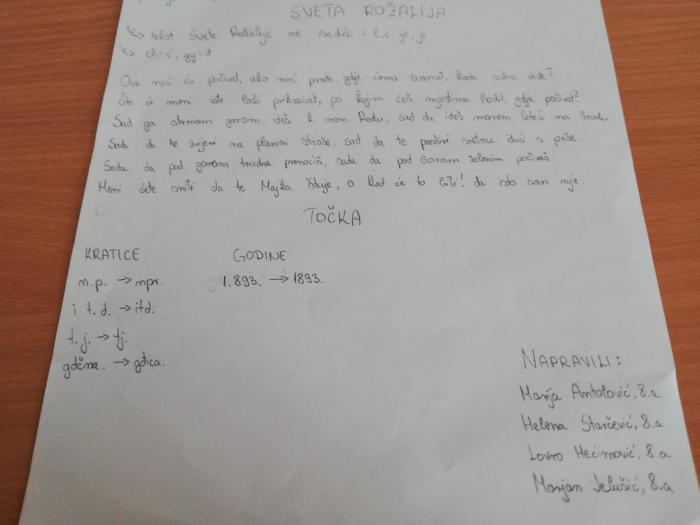 SVETA ROŽALIJA
↳ tekst Svete Rožalije ne sadrži: č, ć, je, je
↳ ch-ć, gy-đ
Ove noći ću počivat, ako noć prođe, gdje ćemo svanut, kada sutra dođe?
Što će meni isti kazati prikazivat, po kojim ćeš mjestima hodit, gdje počivat?
Sad ga strmom gorom ideš k nom Rodu, sad da ideš morem leteći na brodu.
Sada da te zvijeri na planini straše, sad da te pastiri sretnu idući s paše.
Sada da pod gorom trudna prenoćiš, sada da pod borom zelenim počivaš
Meni ćete sniti da te Majka štuje, o kad će to biti! da isto san nije.
TOČKA
KRATICE GODINE
n.p. → npr. 1.893. → 1893.
i t.d. → itd.
t.j. → tj.
gdčna. → gđica.
NAPRAVILI:
Marija Antolović, 8.a
Helena Starčević, 8.a
Lovro Hećimović, 8.a
Marjan Jelušić, 8.a